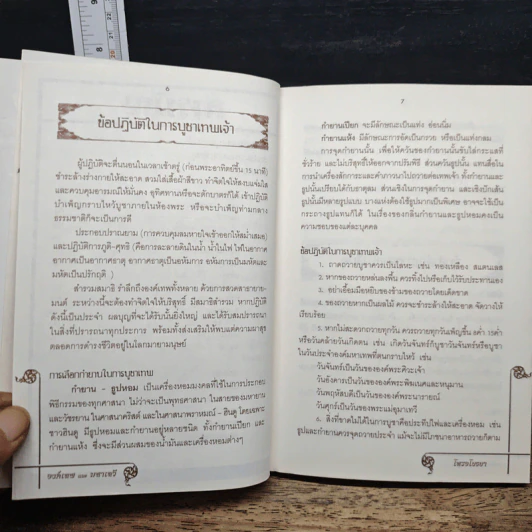 6
ข้อปฏิบัติในการบูชาเทพเจ้า
ผู้ปฏิบัติจะตื่นนอนในเวลาเช้าตรู่ (ก่อนพระอาทิตย์ขึ้น 15 นาที)
ชำระล้างร่างกายให้สะอาด สวมใส่เสื้อผ้าสีขาว ทำจิตใจให้สงบแจ่มใส
และควบคุมอารมณ์ให้มั่นคง อุทิศทานหรือจะตักบาตรก็ได้ เข้าปฏิบัติ
บำเพ็ญกราบไหว้บูชาภายในห้องพระ หรือจะบำเพ็ญท่ามกลาง
ธรรมชาติก็จะเป็นการดี
ประกอบปราณยาม (การควบคุมลมหายใจเข้าออกให้สม่ำเสมอ)
และปฏิบัติการภูติ-ศุทธิ (คือการละลายดินในน้ำ น้ำในไฟ ไฟในอากาศ
อากาศเป็นอากาศธาตุ อากาศธาตุเป็นอหังการ อหังการเป็นมหัตและ
มหัตเป็นปรักฤติ )
สำรวมสมาธิ รำลึกถึงองค์เทพทั้งหลาย ด้วยการสวดสาธยาย-
มนต์ ระหว่างนี้จะต้องทำจิตใจให้บริสุทธิ์ มีสมาธิสำรวม หากปฏิบัติ
ดังนี้เป็นประจำ ผลบุญที่จะได้รับนั้นยิ่งใหญ่ และได้รับสมปรารถนา
ในสิ่งที่ปรารถนาทุกประการ พร้อมทั้งส่งเสริมให้พบแต่ความผาสุข
ตลอดการดำรงชีวิตอยู่ในโลกมายามนุษย์
การเลือกกำยานในการบูชาเทพ
กำยาน - ธูปหอม เป็นเครื่องหอมมงคลที่ใช้ในการประกอบ
พิธีกรรมของทุกศาสนา ไม่ว่าจะเป็นพุทธศาสนา ในสายของมหายาน
และวัชรยาน ในศาสนาคริสต์ และในศาสนาพราหมณ์ - ฮินดู โดยเฉพาะ
ชาวฮินดู มีธูปหอมและกำยานอยู่หลายชนิด ทั้งกำยานเปียก และ
กำยานแห้ง ซึ่งจะมีส่วนผสมของน้ำมันและเครื่องหอมต่างๆ
7
กำยานเปียก จะมีลักษณะเป็นแท่ง อ่อนนิ่ม
กำยานแห้ง มีลักษณะการอัดเป็นกรวย หรือเป็นแท่งกลม
การจุดกำยานนั้น เพื่อให้ควันของกำยานนั้นขับไล่กระแสที่
ชั่วร้าย และไม่บริสุทธิ์ให้ออกจากปรัมพิธี ส่วนควันธูปนั้น แทนสื่อใน
การนำเครื่องสักการะและคำภาวนาไปถวายต่อเทพเจ้า ทั้งกำยานและ
ธูปนั้นเปรียบได้กับธาตุลม ส่วนเชิงในการจุดกำยาน และเชิงปักเส้น
ธูปนั้นมีหลายรูปแบบ บางแห่งต้องใช้รูปมากเป็นพิเศษ อาจจะใช้เป็น
กระถางธูปแทนก็ได้ ในเรื่องของกลิ่นกำยานและธูปหอมคงเป็นความ
ชอบของแต่ละบุคคล
ข้อปฏิบัติในการบูชาเทพเจ้า
1. ถาดถวายบูชาควรเป็นโลหะ เช่น ทองเหลือง สแตนเลส
2. หากของถวายหล่นลงพื้น ควรทิ้งไปหรือเก็บไว้รับประทานเอง
3. อย่าเอื้อมมือหยิบของข้ามของถวายโดยเด็ดขาด
4. ของถวายหากเป็นผลไม้ ควรจะชำระล้างให้สะอาด จัดวางให้
เรียบร้อย
5. หากไม่สะดวกถวายทุกวัน ควรถวายทุกวันเพ็ญขึ้น 15 ค่ำ
หรือวันคล้ายวันเกิดตน เช่น เกิดวันจันทร์ก็บูชาวันจันทร์หรือบูชา
ในวันประจำองค์มหาเทพที่ตนกราบไหว้ เช่น
วันจันทร์เป็นวันขององค์พระศิวะเจ้า
วันอังคารเป็นวันขององค์พระพิฆเนศและหนุมาน
วันพฤหัสบดีเป็นวันขององค์พระนารายณ์
วันศุกร์เป็นวันของพระแม่อุมาเทวี
6. สิ่งที่ขาดไม่ได้ในการบูชาคือประทีปไฟและเครื่องหอม เช่น
ธูปและกำยานควรจุดถวายประจำ แม้จะไม่มีโภชนาอาหารถวายก็ตาม